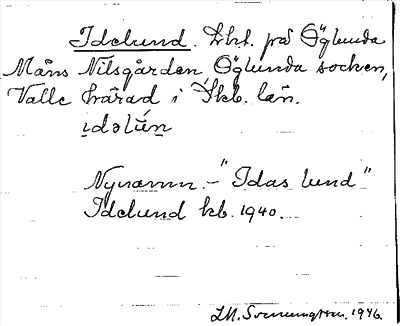 Idelund. Lht. på Öglunda
Måns Nilsgården, Öglunda socken,
Valle härad i Skb. län.
idəlún
Nynamn. - "Idas lund"
Idelund kb. 1940.
1946.